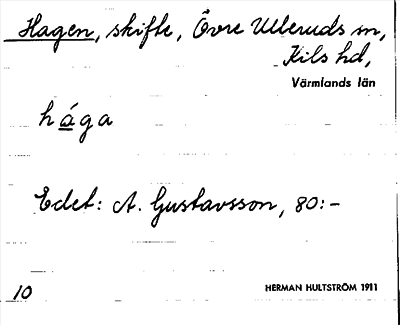 Hagen, skifte, Övre Ulleruds sn,
Kils hd,
Värmlands län
håga
Edet: A. Gustavsson, 80:-
10
HERMAN HULTSTRÖM 1911